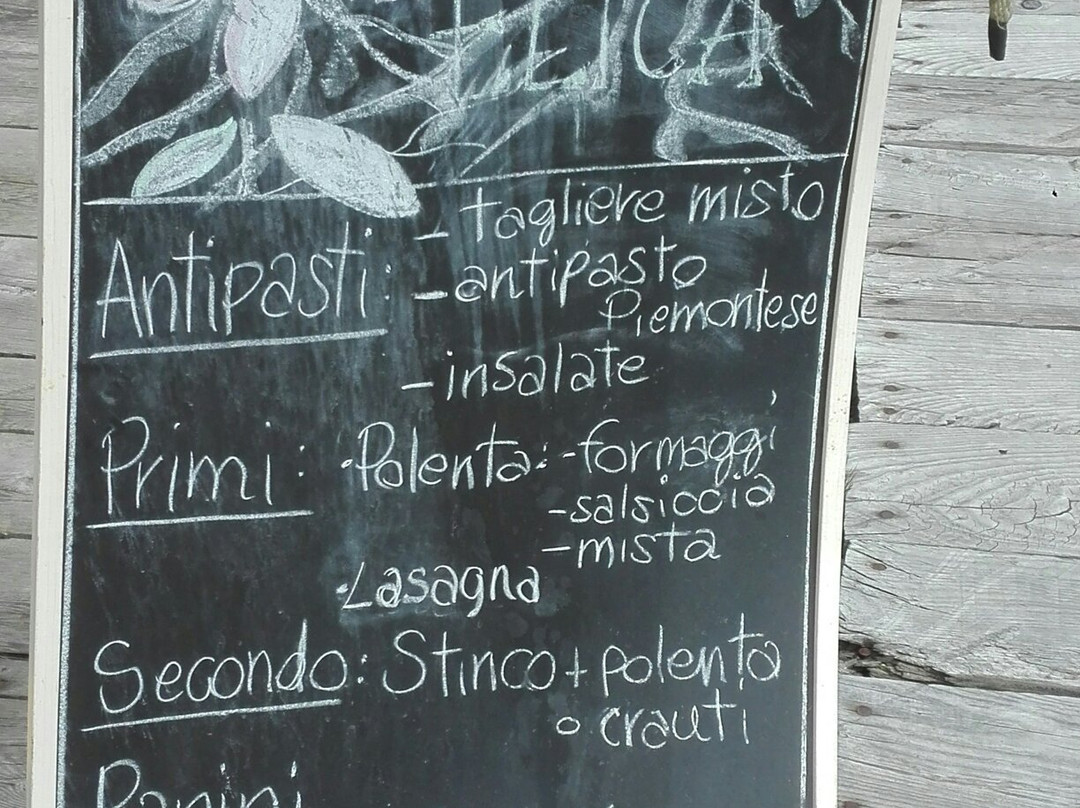 Antipasti: - Tagliere misto
- antipasto
Piemontese
- insalate
Primi: · Polenta: - formaggi
- salsiccia
- mista
· Lasagna
Secondo: Stinco + polenta
o crauti
Panini